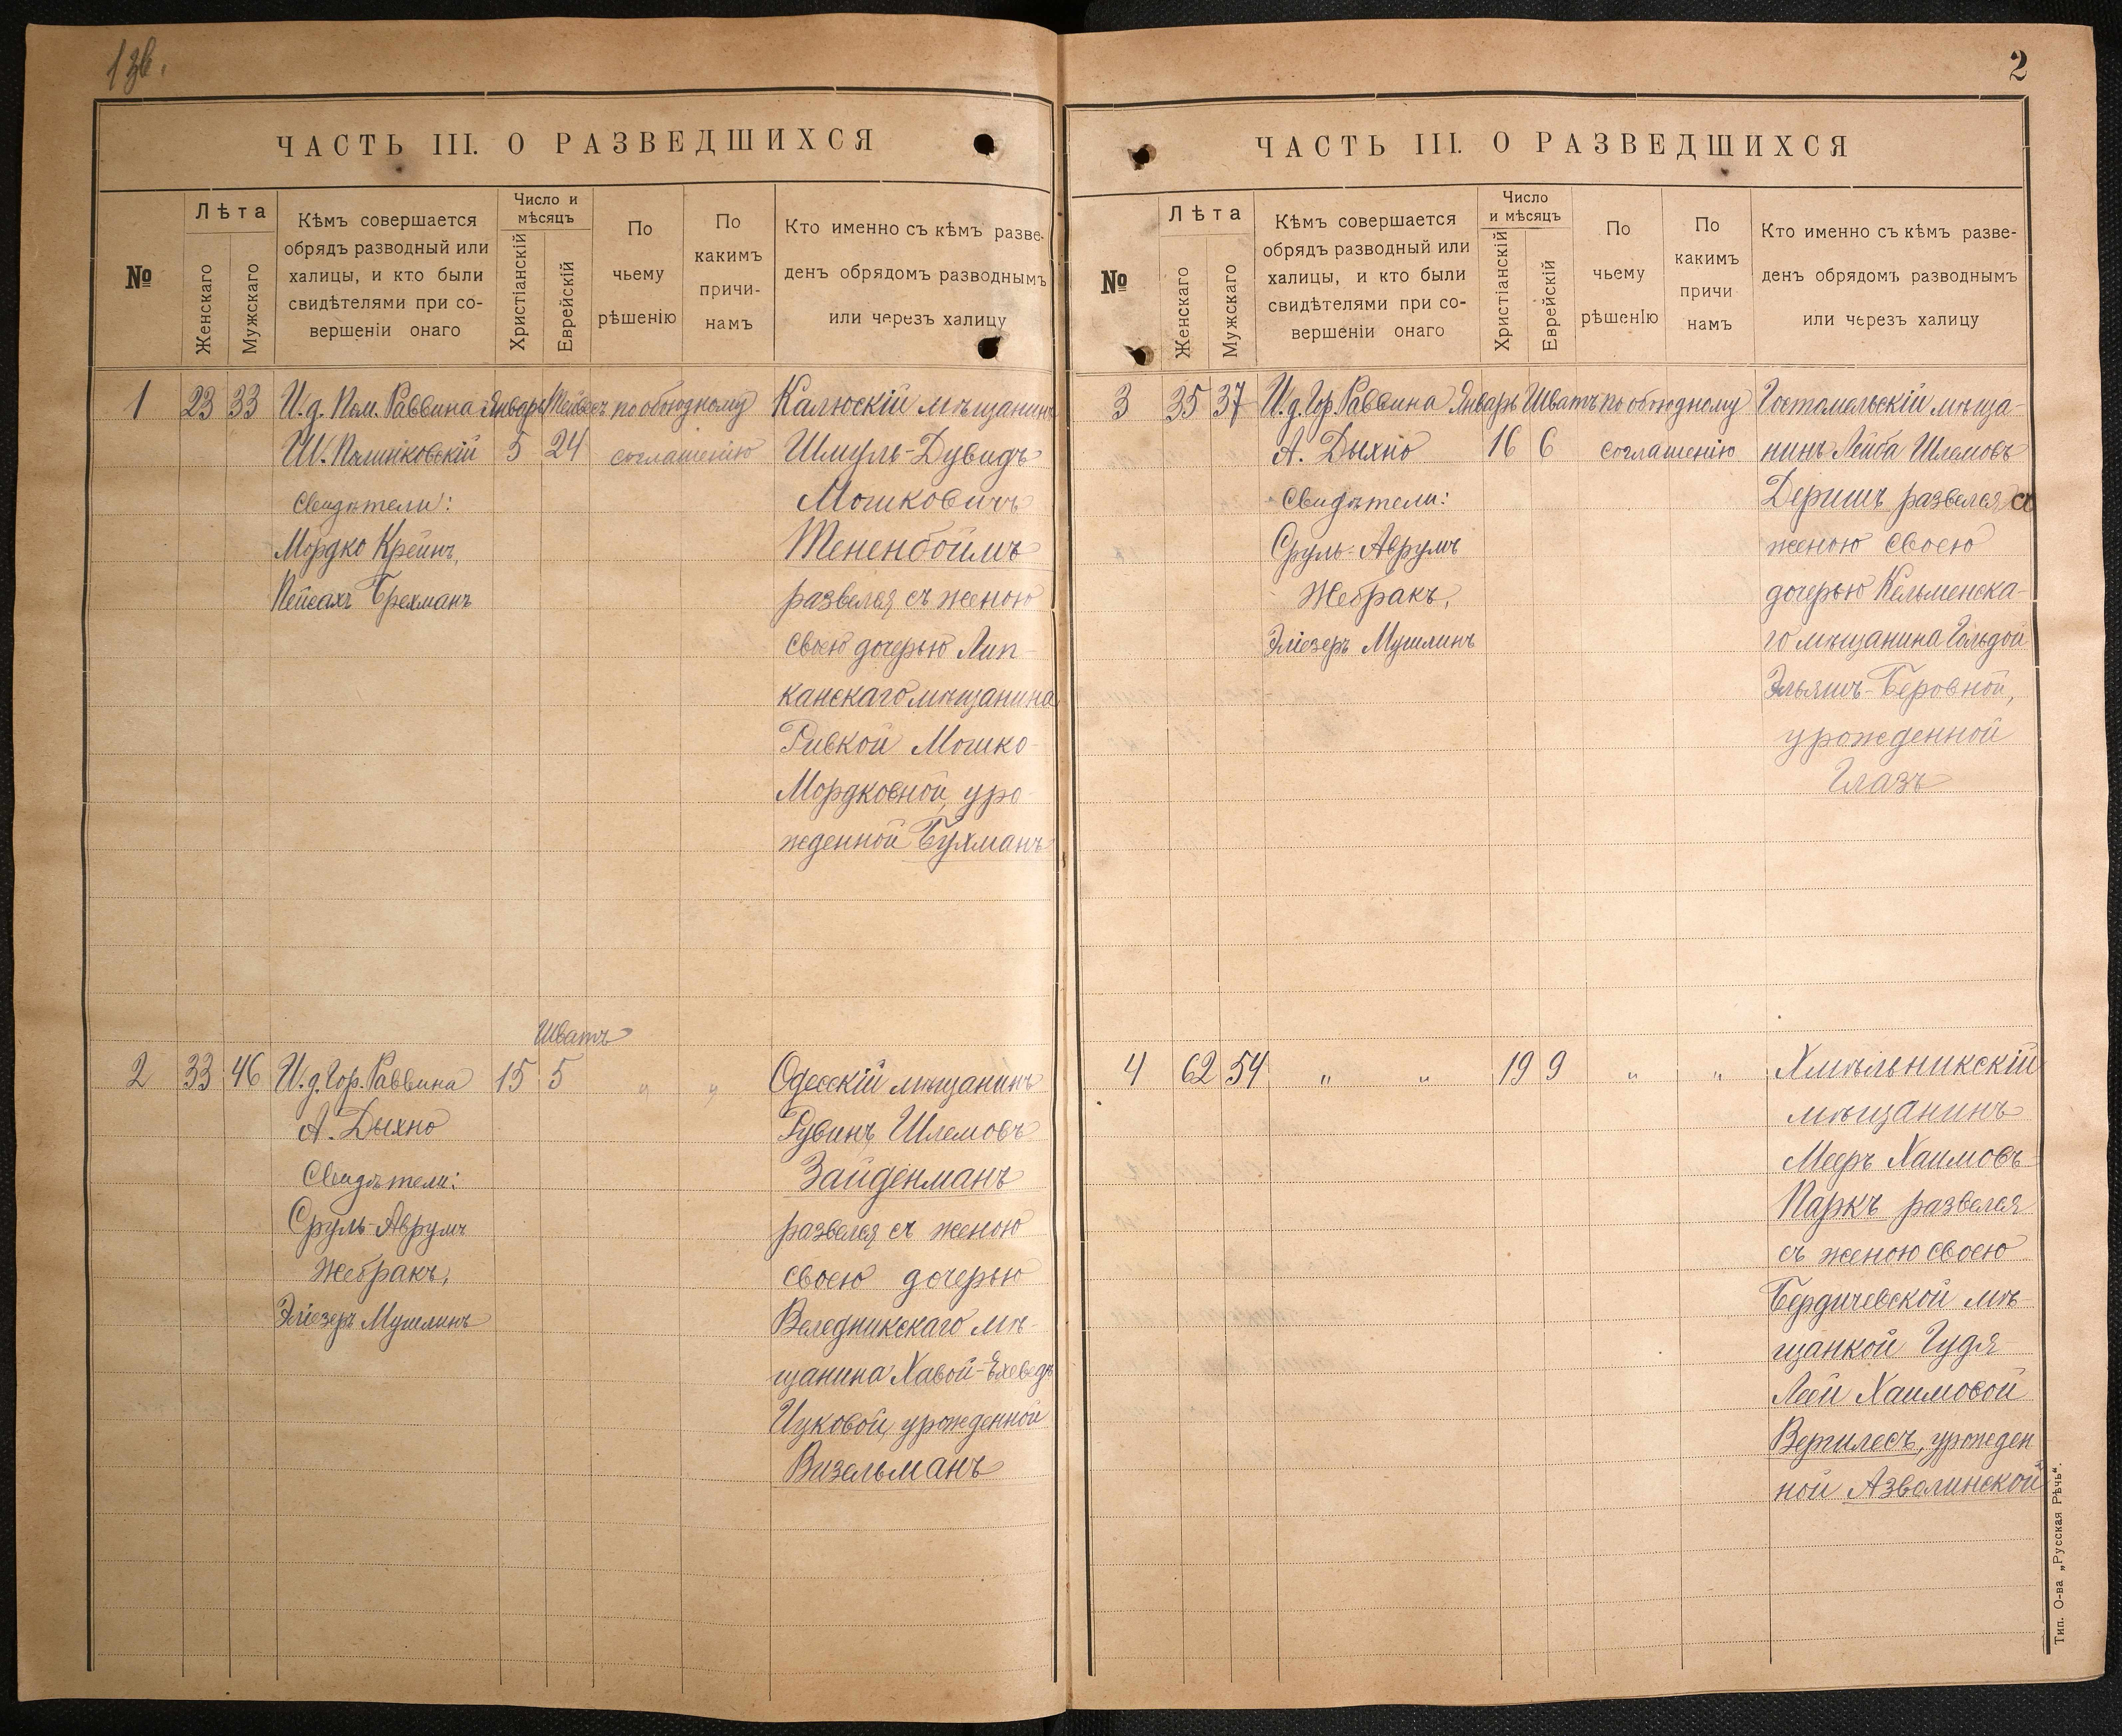 1зв.
ЧАСТЬ III. О РАЗВЕДШИХСЯ
№
Лѣта
Женскаго
Мужскаго
Кѣмъ совершается
обрядъ разводный или
халицы, и кто были
свидѣтелями при со-
вершеніи онаго
Число и
мѣсяцъ
Христіанскій
Еврейскій
По
чьему
рѣшенію
По
какимъ
причи-
намъ
Кто именно съ кѣмъ разве-
денъ обрядомъ разводнымъ
или черезъ халицу
1 23 33 И.д. Пом. Раввина Январь Тейвесъ по обоюдному Калюскій мѣщанинъ
Ш. Полинковскій 5 24 соглашенію Шмуль-Дувидъ
Свидѣтели: Мошковичъ
Мордко Крейнъ, Тененбоймъ
Пейсахъ Брехманъ развелся съ женою
своею дочерью Лип-
канскаго мѣщанина
Ривкой Мошко-
Мордковной, уро-
жденной Бухманъ
Шватъ
2 33 46 И.д. Гор. Раввина 15 5 " " Одесскій мѣщанинъ
А. Дыхно Рувинъ Шлемовъ
Свидѣтели: Зайденманъ
Сруль-Аврумъ развелся съ женою
Жебракъ, своею дочерью
Эліезеръ Мушлинъ Веледникскаго мѣ-
щанина Хавой-Ехеведъ
Ицковой, урожденной
Визельманъ
2
ЧАСТЬ III. О РАЗВЕДШИХСЯ
№
Лѣта
Женскаго
Мужскаго
Кѣмъ совершается
обрядъ разводный или
халицы, и кто были
свидѣтелями при со-
вершеніи онаго
Число
и мѣсяцъ
Христіанскій
Еврейскій
По
чьему
рѣшенІю
По
какимъ
причи
намъ
Кто именно съ кѣмъ разве-
денъ обрядомъ разводнымъ
или черезъ халицу
3 35 37 И.д. Гор. Раввина Январь Шватъ по обоюдному Гостомельскій мѣща-
А. Дыхно 16 6 соглашенію нинъ Лейба Шлемовъ
Свидѣтели: Деришъ развелся съ
Сруль-Аврумъ женою своею
Жебракъ, дочерью Кельменска-
Эліезеръ Мушлинъ го мѣщанина Гольдой
Эльяшъ-Беровной,
урожденной
Глазъ
4 62 54 " " 19 9 " " Хмѣльникскій
мѣщанинъ
Мееръ Хаимовъ
Паркъ развелся
съ женою своею
Бердичевской мѣ-
щанкой Гудя-
Леей Хаимовой
Вергилесъ, урожден
ной Азволинской
Тип. О-ва „Русская Рѣчь“.